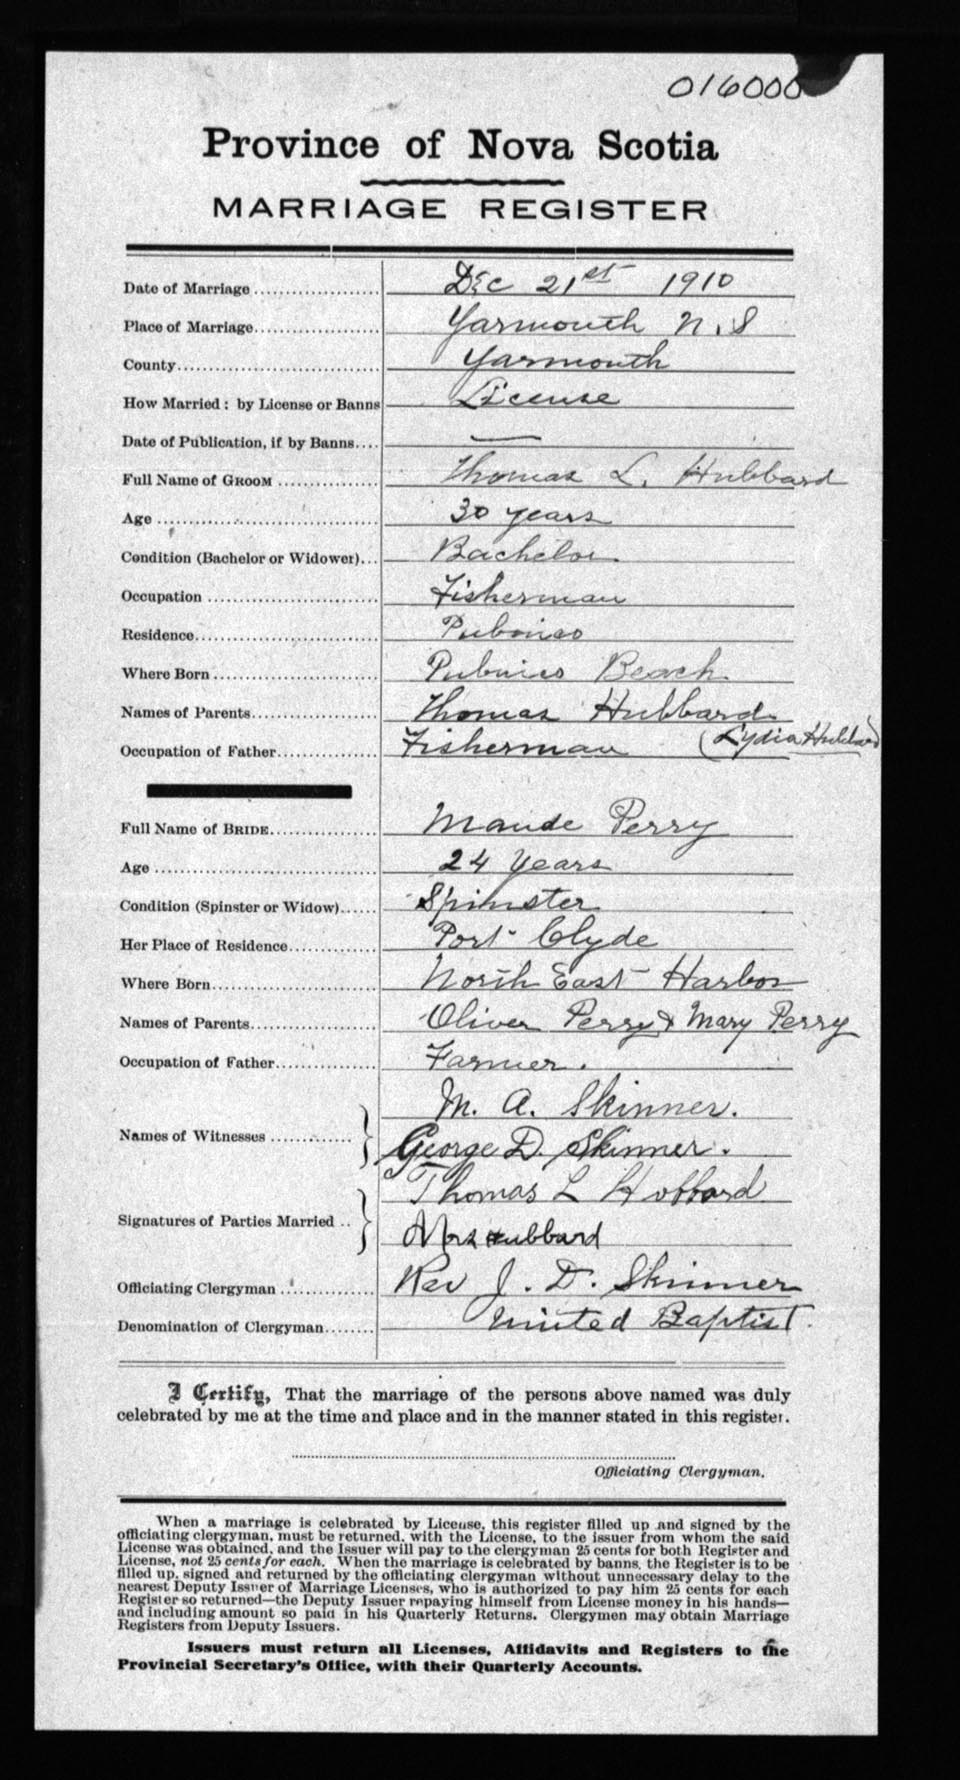 016000
Province of Nova Scotia
MARRIAGE REGISTER
Date of Marriage .................... Dec 21st 1910
Place of Marriage.................... Yarmouth N.S
County................................ Yarmouth
How Married: by License or Banns License
Date of Publication, if by Banns.... —
Full Name of GROOM ................ Thomas L. Hubbard
Age .................................. 30 years
Condition (Bachelor or Widower)... Bachelor
Occupation ........................... Fisherman
Residence............................. Pubnico
Where Born ........................... Pubnico Beach
Names of Parents.................... Thomas Hubbard
Occupation of Father................ Fisherman (Lydia Hubbard)
Full Name of BRIDE.................. Maude Perry
Age .................................. 24 years
Condition (Spinster or Widow)...... Spinster
Her Place of Residence.............. Port Clyde
Where Born........................... North East Harbor
Names of Parents.................... Oliver Perry & Mary Perry
Occupation of Father................ Farmer.
M. A. Skinner.
Names of Witnesses ............
George D. Skinner.
Thomas L Hobbard
Signatures of Parties Married ..
Mrs Hubbard
Officiating Clergyman ............... Rev J. D. Skinner
Denomination of Clergyman........ United Baptist.
I Certify, That the marriage of the persons above named was duly
celebrated by me at the time and place and in the manner stated in this register.
Officiating Clergyman.
When a marriage is celebrated by License, this register filled up and signed by the
officiating clergyman, must be returned, with the License, to the issuer from whom the said
License was obtained, and the Issuer will pay to the clergyman 25 cents for both Register and
License, not 25 cents for each. When the marriage is celebrated by banns, the Register is to be
filled up, signed and returned by the officiating clergyman without unnecessary delay to the
nearest Deputy Issuer of Marriage Licenses, who is authorized to pay him 25 cents for each
Register so returned—the Deputy Issuer repaying himself from License money in his hands—
and including amount so paid in his Quarterly Returns. Clergymen may obtain Marriage
Registers from Deputy Issuers.
Issuers must return all Licenses, Affidavits and Registers to the
Provincial Secretary's Office, with their Quarterly Accounts.